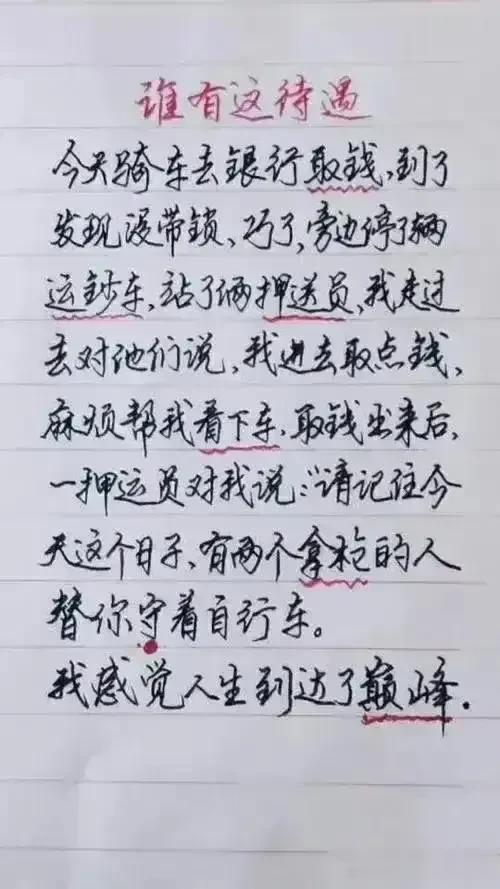 谁有这待遇
今天骑车去银行取钱,到了
发现没带锁、巧了,旁边停了辆
运钞车,站了俩押送员,我走过
去对他们说,我进去取点钱,
麻烦帮我看下车,取钱出来后,
一押运员对我说:“请记住今
天这个日子、有两个拿枪的人
替你守着自行车。
我感觉人生到达了巅峰.